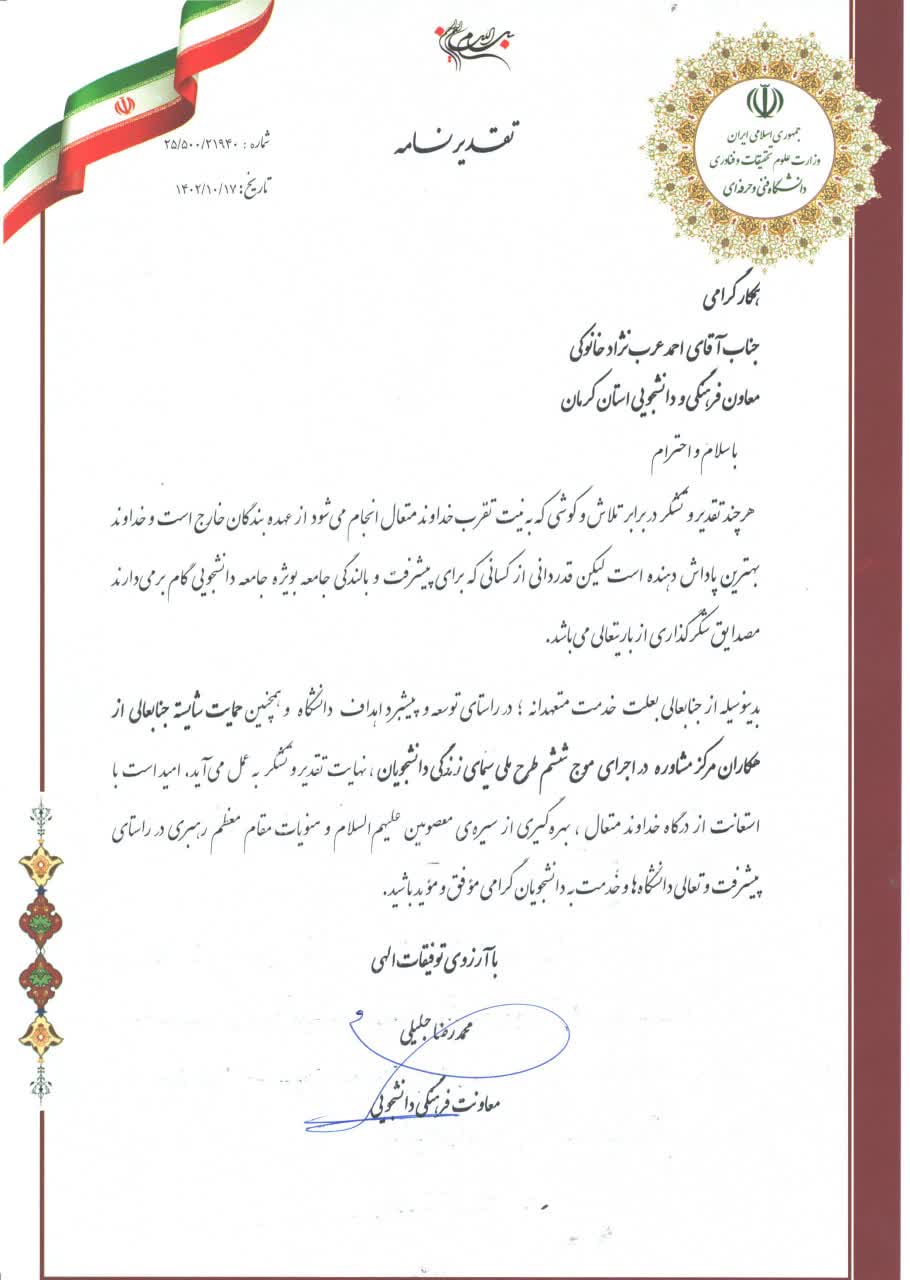 بسم الله الرحمن الرحیم
جمهوری اسلامی ایران
وزارت علوم تحقیقات و فناوری
دانشگاه فنی و حرفه‌ای
تقدیرنامه
شماره : ۲۵/۵۰۰/۲۱۹۴۰
تاریخ: ۱۴۰۲/۱۰/۱۷
همکار گرامی
جناب آقای احمد عرب نژاد خانوکی
معاون فرهنگی و دانشجویی استان کرمان
باسلام و احترام
هرچند تقدیر و تشکر در برابر تلاش و کوششی که به نیت تقرب خداوند متعال انجام می‌شود از عهده بندگان خارج است و خداوند
بهترین پاداش دهنده است لیکن قدردانی از کسانی که برای پیشرفت و بالندگی جامعه بویژه جامعه دانشجویی گام برمی‌دارند
مصدایق شکرگذاری از باریتعالی می‌باشد.
بدینوسیله از جنابعالی بعلت خدمت متعهدانه ؛ در راستای توسعه و پیشبرد اهداف دانشگاه و همچنین حمایت شایسته جنابعالی از
همکاران مرکز مشاوره در اجرای موج ششم طرح ملی سیمای زندگی دانشجویان ، نهایت تقدیر و تشکر به عمل می‌آید. امید است با
استعانت از درگاه خداوند متعال ، بهره‌گیری از سیره‌ی معصومین علیهم السلام و منویات مقام معظم رهبری در راستای
پیشرفت و تعالی دانشگاه‌ها و خدمت به دانشجویان گرامی مؤفق و مؤید باشید.
با آرزوی توفیقات الهی
محمدرضا جلیلی
معاونت فرهنگی دانشجویی